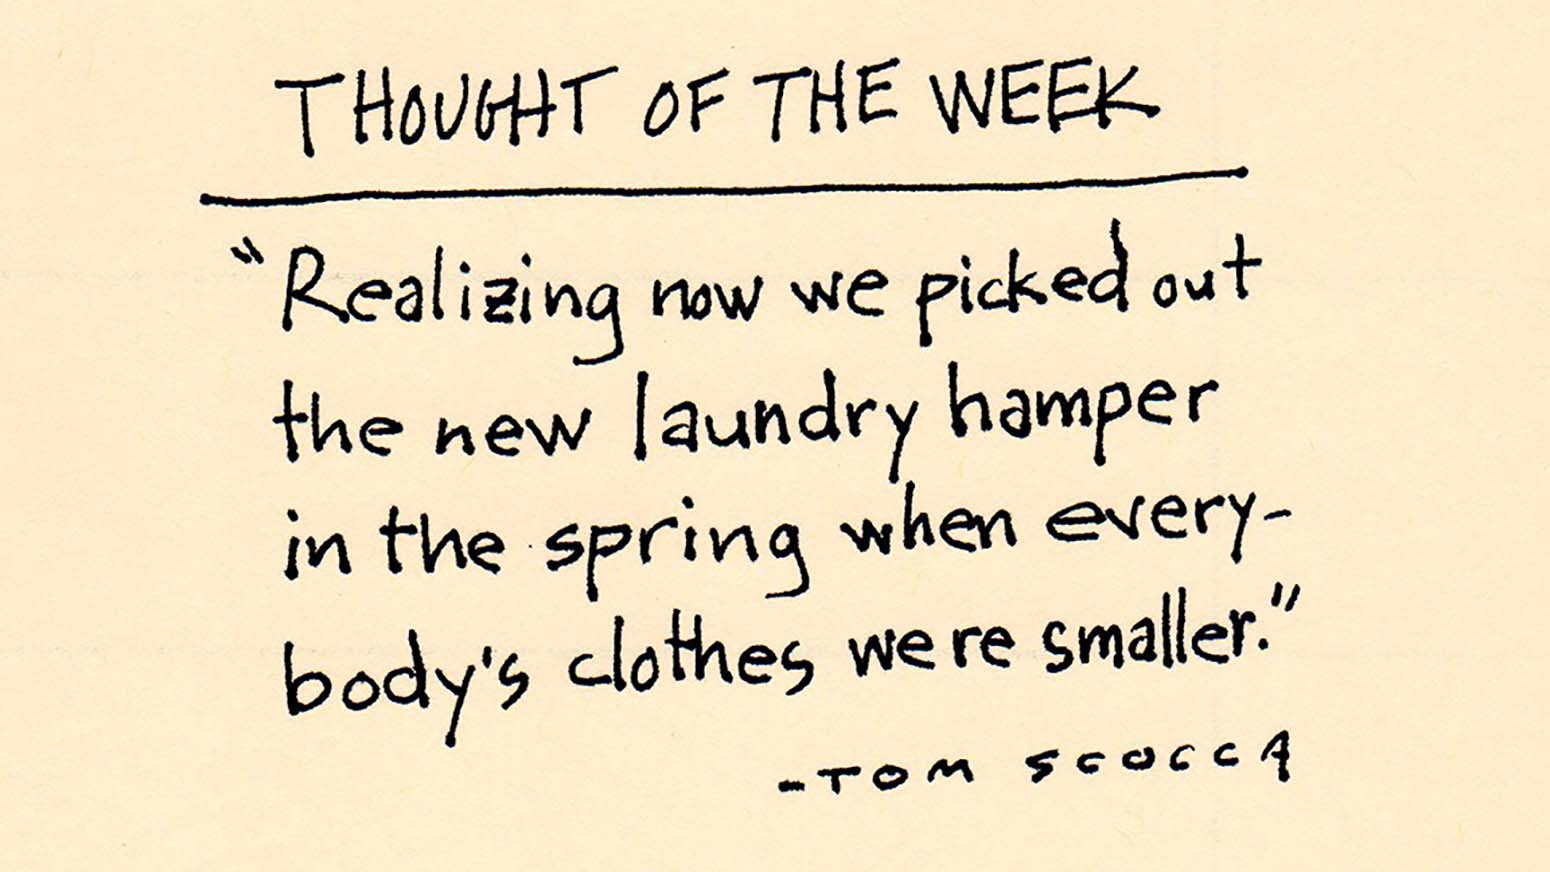 THOUGHT OF THE WEEK
"Realizing now we picked out
the new laundry hamper
in the spring when every-
body's clothes were smaller."
-TOM SCOCCA